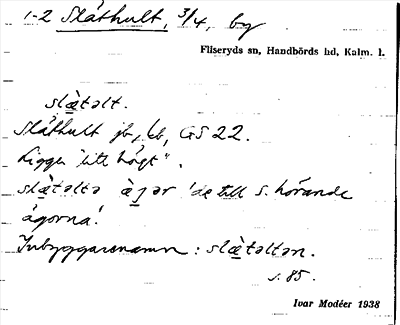 1-2 Slåthult, 3/4, by
Fliseryds sn, Handbörds hd, Kalm. l.
slæ̀təlt.
Slåthult jb, kb, GS 22.
Ligger "litt högt".
slæ̀təltə àgər 'de till S. hörande
ägorna'.
Inbyggarenamn: slæ̀təltən.
s. 85.
Ivar Modéer 1938